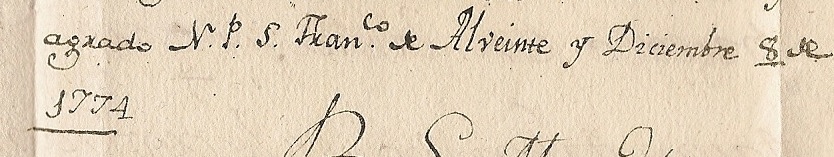 agrado N. P. S. Fran.co de Alveinte y Diciembre 8 de
1774